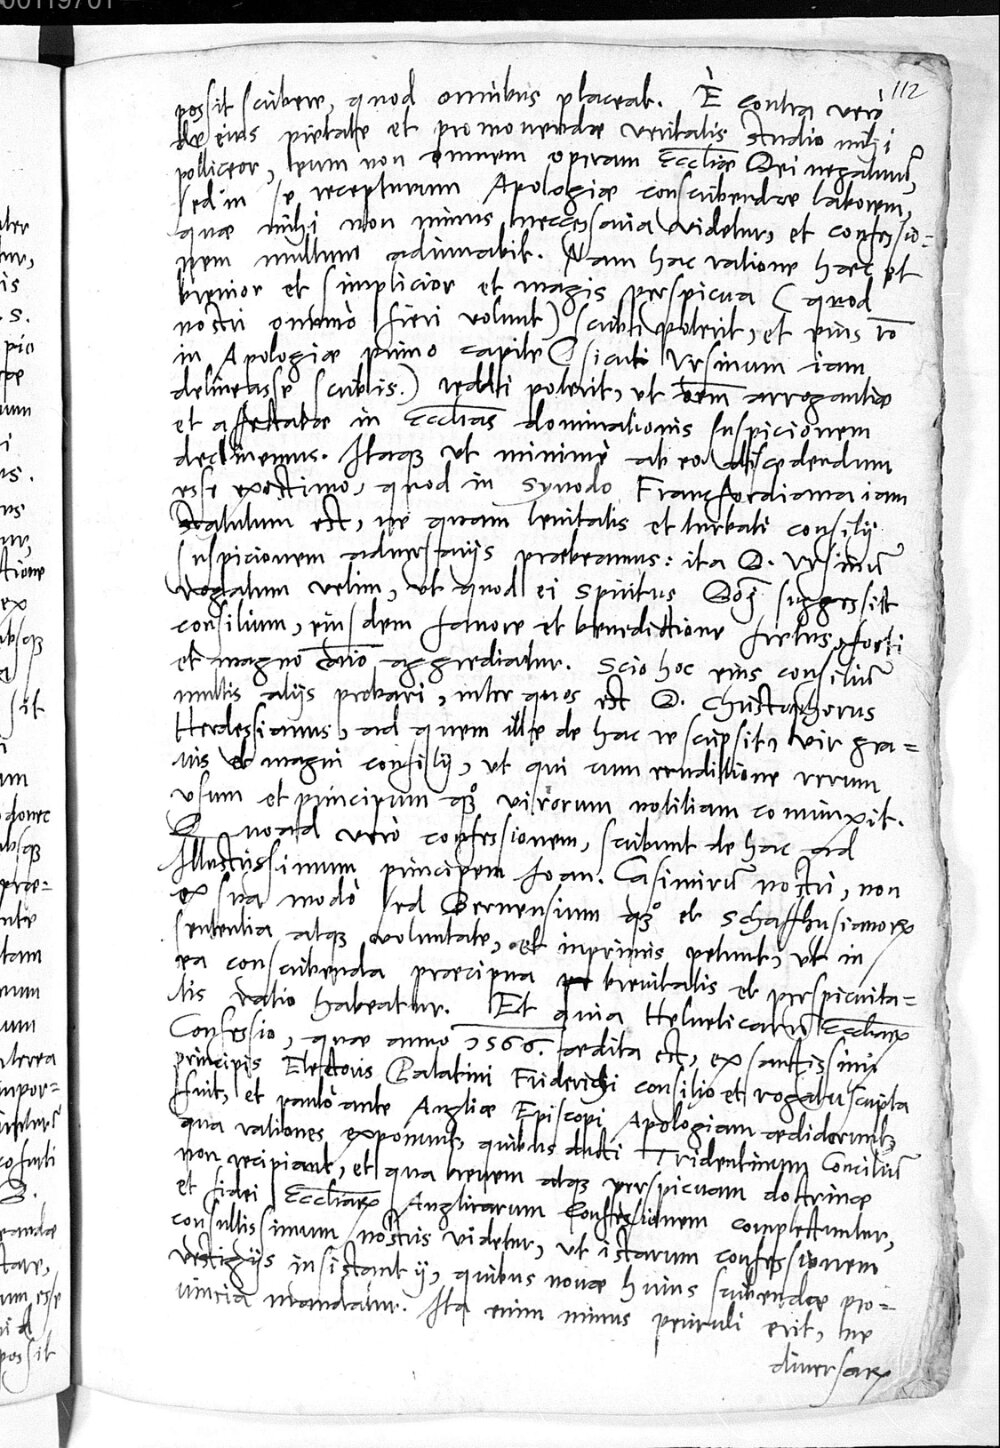 112
possit scribere, quod omnibus placeat. È contra verò
de eius pietate et promovendae veritatis studio mihi
polliceor, eum non omnem operam Eccliae Dei negaturū,
sed in se recepturum Apologiae conscribendae laborem,
quae mihi non minus necessaria videtur, et confessio=
nem multum adiuvabit. Nam hac ratione haec et
brevior et simplicior et magis perspicua (quod
nostri omninò fieri volunt) scribi poterit, et eius rō
in Apologiae primo capite (sicuti Ursinum iam
delineasse scribis.) reddi poterit, ut oēm arrogantiae
et affectatae in Ecclias dominationis suspicionem
declinemus. Itaq; ut minimè ab eo discedendum
esse existimo, quod in Synodo Francfordiana iam
statutum est, ne quam levitatis et turbati consilij
suspicionem adversarijs praebeamus: ita D. Ursinū
rogatum velim, ut quod ei Spiritus Dnj suggessit
consilium, eiusdem favore et benedictione fretus, forti
et magno aīo aggrediatur. Scio hoc eius consiliū
multis alijs probari, inter quos est D. Christophorus
Herdessianus, ad quem ille de hac re scripsit, vir gra=
vis et magni consilij, ut qui cum eruditione rerum
usum et principum quoq; virorum notitiam coniunxit.
Quoad verò confessionem, scribunt de hac ad
Illustrissimum principem Joan. Casimirū nostri, non
ex sua modò sed Bernensium quoq; et Schaffhusianorꝝ
sententia atq; voluntate, et inprimis petunt, ut in
ea conscribenda praecipua brevitatis et perspicuita=
tis ratio habeatur. Et quia Helveticarū Eccliarꝝ
Confessio, quae anno 1566. aedita est, ex sanctissimi
principis Electoris Palatini Friderichi consilio et rogatu scripta
fuit, et paulò ante Angliae Episcopi Apologiam aediderunt,
qua rationes exponunt, quibus ducti Tridentinum Conciliū
non recipiant, et qua brevem atq; perspicuam doctrinae
et fidei Eccliarꝝ Anglicarum Confessionem complectuntur,
consultissimum nostris videtur, ut istarum confessionem
vestigijs insistant ij, quibus novae huius scribendae pro=
vincia mandatur. Ita enim minus periculi erit, ne
diversarꝝ